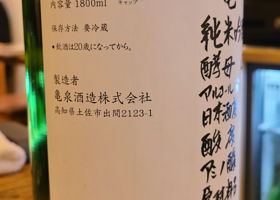 内容量 1800ml
キャップ
保存方法 要冷蔵
•飲酒は20歳になってから。
製造者
亀泉酒造株式会社
高知県土佐市出間2123-1
亀
純米吟
酵母
アルコール
日本酒度
酸度
アミノ酸
原料